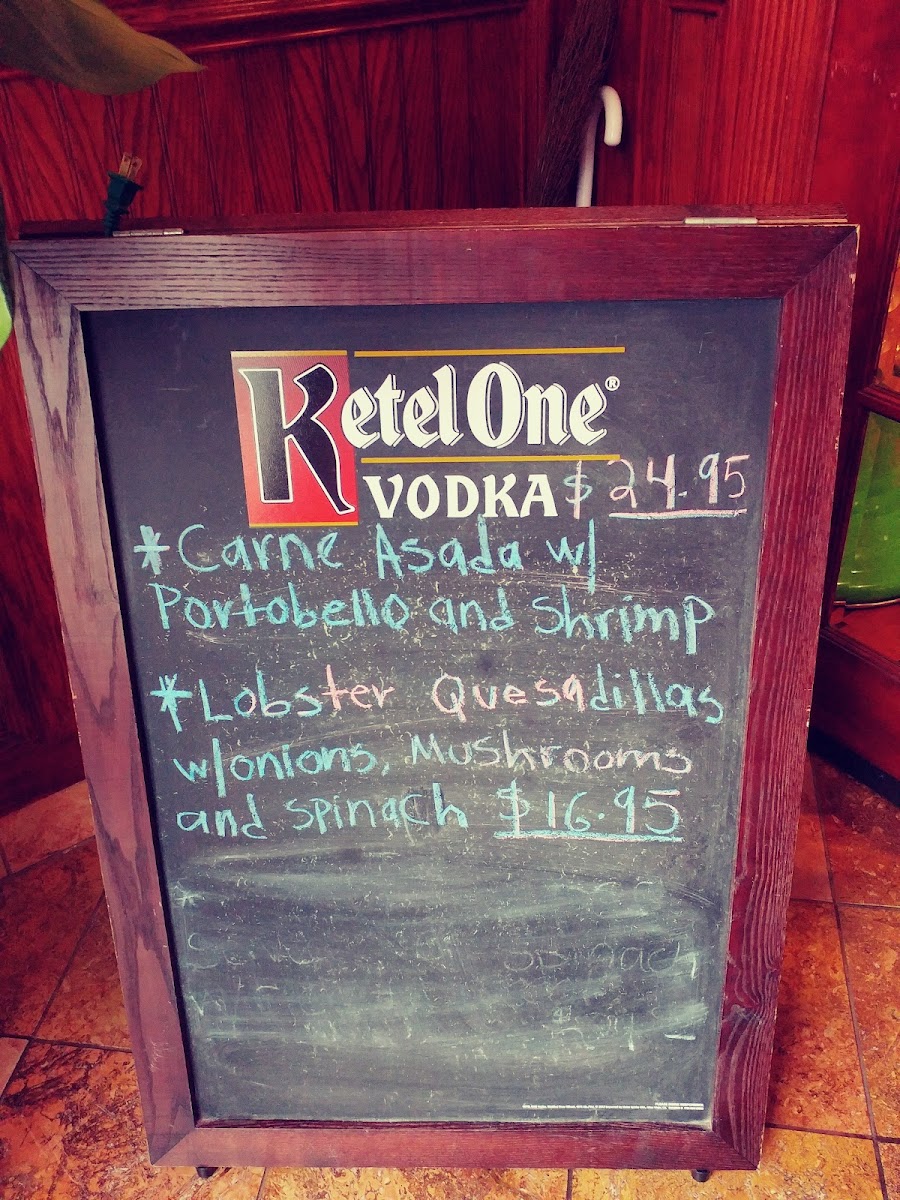 Ketel One®
VODKA $ 24.95
*Carne Asada w/
Portobello and Shrimp
*Lobster Quesadillas
w/onions, Mushrooms
and spinach $16.95
spinach